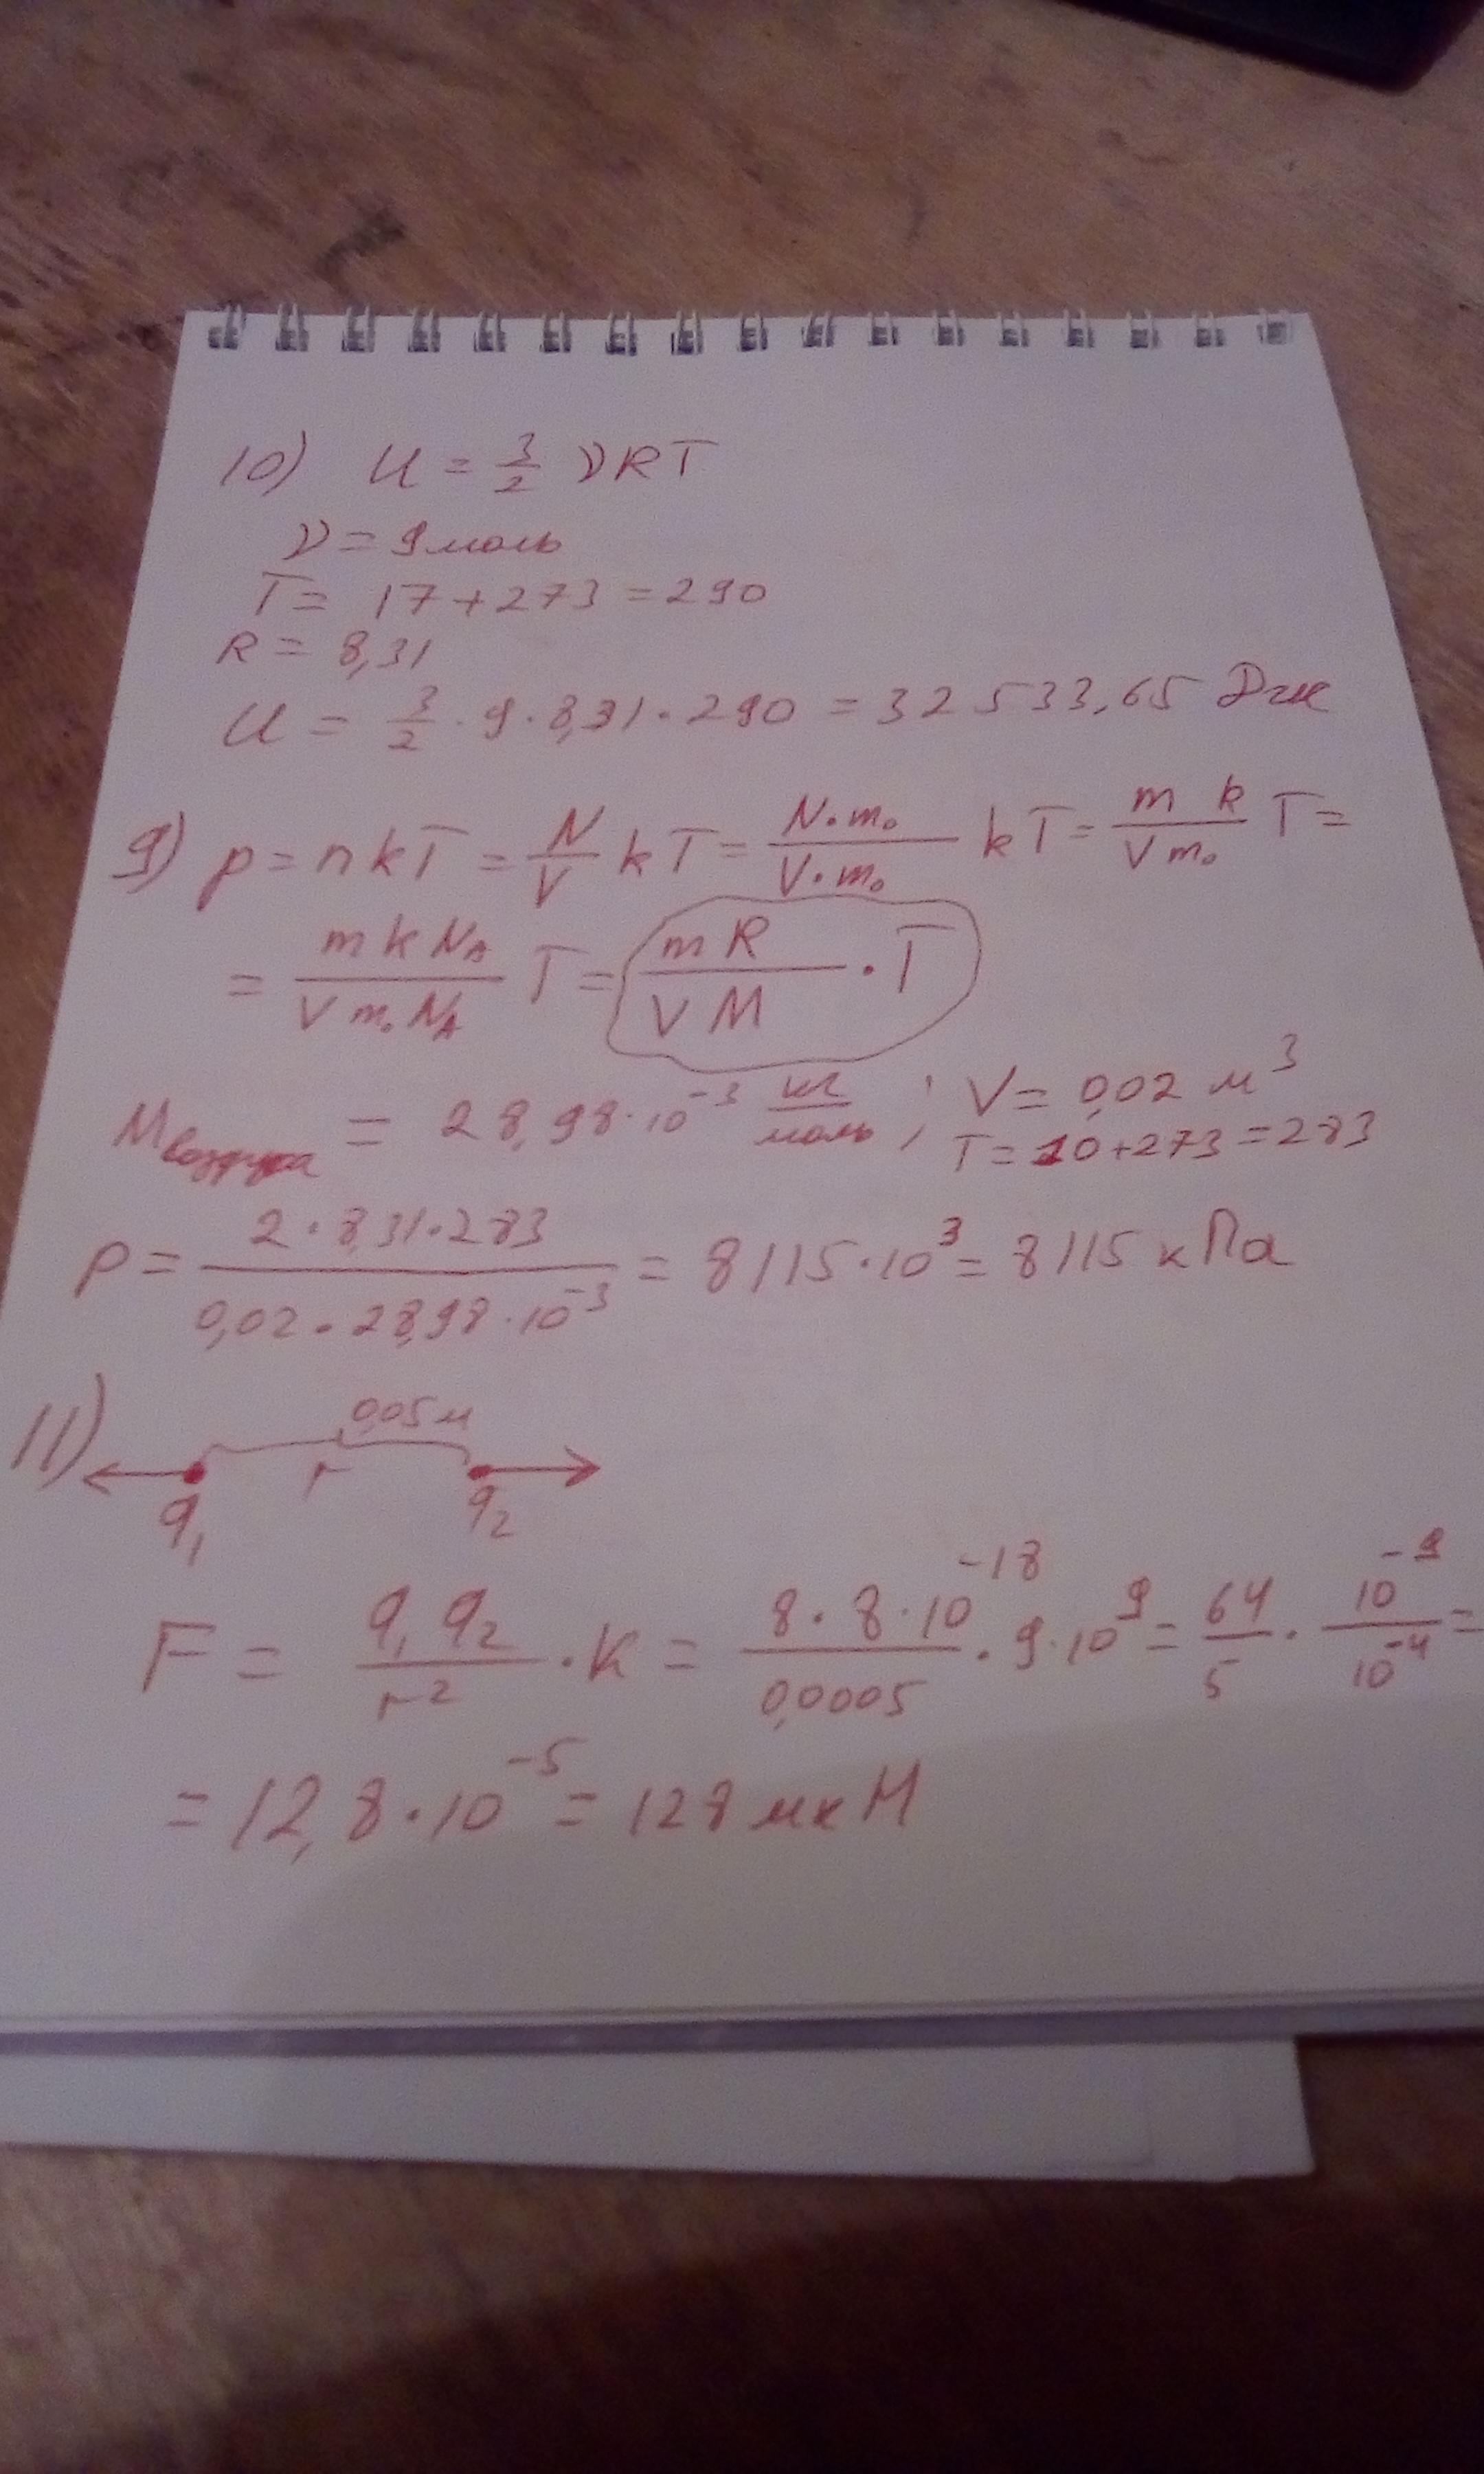 10) U = 3/2 νRT
ν = 9 моль
T = 17 + 273 = 290
R = 8,31
U = 3/2 · 9 · 8,31 · 290 = 32533,65 Дж
9) p = nkT = N/V kT = N·m₀/V·m₀ kT = m k/V m₀ T =
= m k N_A/V m₀ N_A T = m R/V M · T
M воздуха = 28,98·10⁻³ кг/моль ; V = 0,02 м³
T = 10 + 273 = 283
p = 2 · 8,31 · 283/0,02 · 28,98 · 10⁻³ = 8115·10³ = 8115 кПа
11)
0,05 м
r
q₁ q₂
F = q₁ q₂/r² · k = 8 · 8 · 10⁻¹⁸/0,0005 · 9·10⁹ = 64/5 · 10⁻⁹/10⁻⁴ =
= 12,8 · 10⁻⁵ = 128 мкН